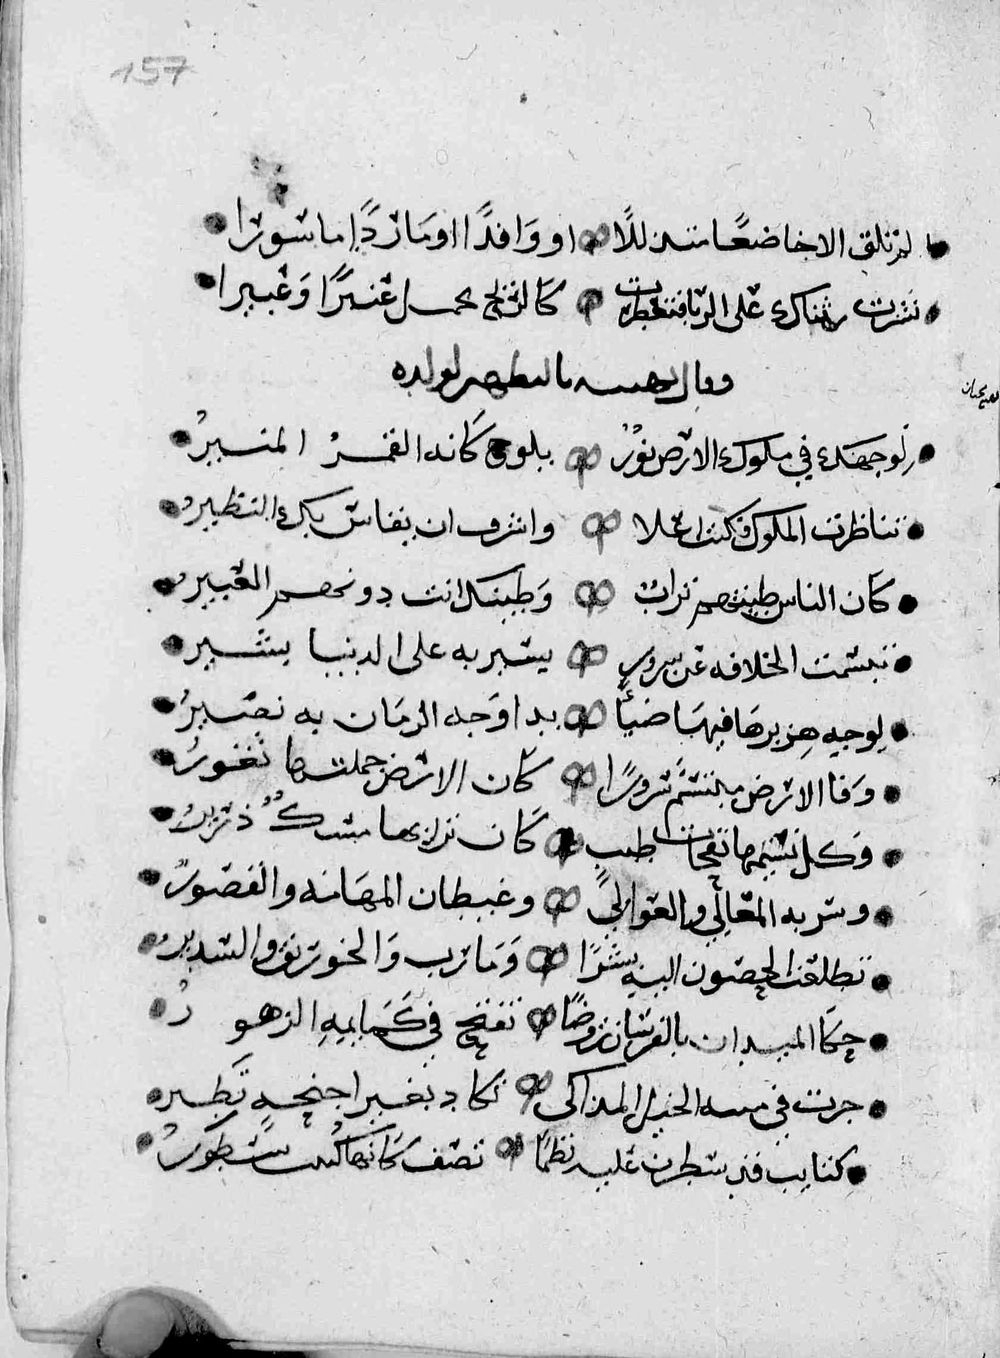 157
لم تلق الا خاضعًا متذللًا او وافدًا او ماردًا ماسورا
نشرت ثناك على الربا فتعطرت كالريح يحمل عنبرًا وعبيرا
وقال يهنيه بالتطهير لولده
لوجهك في ملوك الارض نور يلوح كانه القمر المنير
تناظرت الملوك فكنت اعلا واشرف ان يقاس بك النظير
كان الناس طينتهم تراب وطينك انت دونهم العبير
تبسمت الخلافه عن سرور يسير به على الدنيا بشير
لوجه هزبرها فيها ضياً بدا وجه الزمان به نضير
وفا الارض مبتسم سرورًا كان الارض جملتها ثغور
وكل نسيمها نفحات طيب كان ترابها مسك ذرير
وسر به المعالي والعوالي وغبطان المهابه والقصور
تطلعت الحصون اليه بشرًا ومارب والخورنق والسدير
حكا الميدان بالفرسان روضًا تفتح في كمايمه الزهور
جرت فيه الخيل المذاكى تكاد بغير اجنحه تطير
كتايب قد سطرن عليه نظمًا تصف كانها سطور